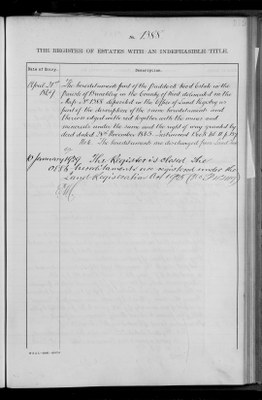 No. 1388
THE REGISTER OF ESTATES WITH AN INDEFEASIBLE TITLE.
Date of Entry. Description.
April 21st The hereditaments part of the Estate in the
Parish of Bromley in the County of Kent delineated on the
Map No. 1388 deposited in the Office of Land Registry as
part of the description of the same hereditaments and
thereon edged with red together with the mines and
minerals under the same and the right of way granted by
deed dated November
Note. The hereditaments are discharged from Land Tax
January 1929 The Register is closed the
hereditaments are registered under the
Land Registration Act 1925